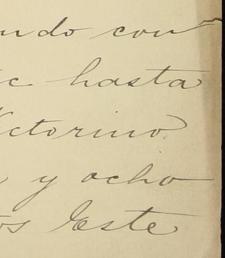 ndo con
te hasta
Victorino
y ocho
tos Este